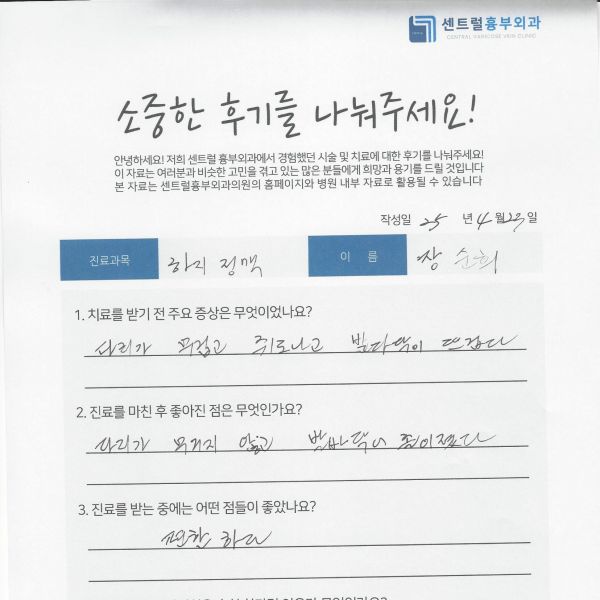 센트럴흉부외과
CENTRAL VARICOSE VEIN CLINIC
소중한 후기를 나눠주세요!
안녕하세요! 저희 센트럴 흉부외과에서 경험했던 시술 및 치료에 대한 후기를 나눠주세요!
이 자료는 여러분과 비슷한 고민을 겪고 있는 많은 분들에게 희망과 용기를 드릴 것입니다
본 자료는 센트럴흉부외과의원의 홈페이지와 병원 내부 자료로 활용될 수 있습니다
작성일 25 년 4 월 23 일
진료과목 하지 정맥 이 름 장순희
1. 치료를 받기 전 주요 증상은 무엇이었나요?
다리가 무겁고 쥐도나고 발다닥이 뜨겁다
2. 진료를 마친 후 좋아진 점은 무엇인가요?
다리가 않고
3. 진료를 받는 중에는 어떤 점들이 좋았나요?
편한하다